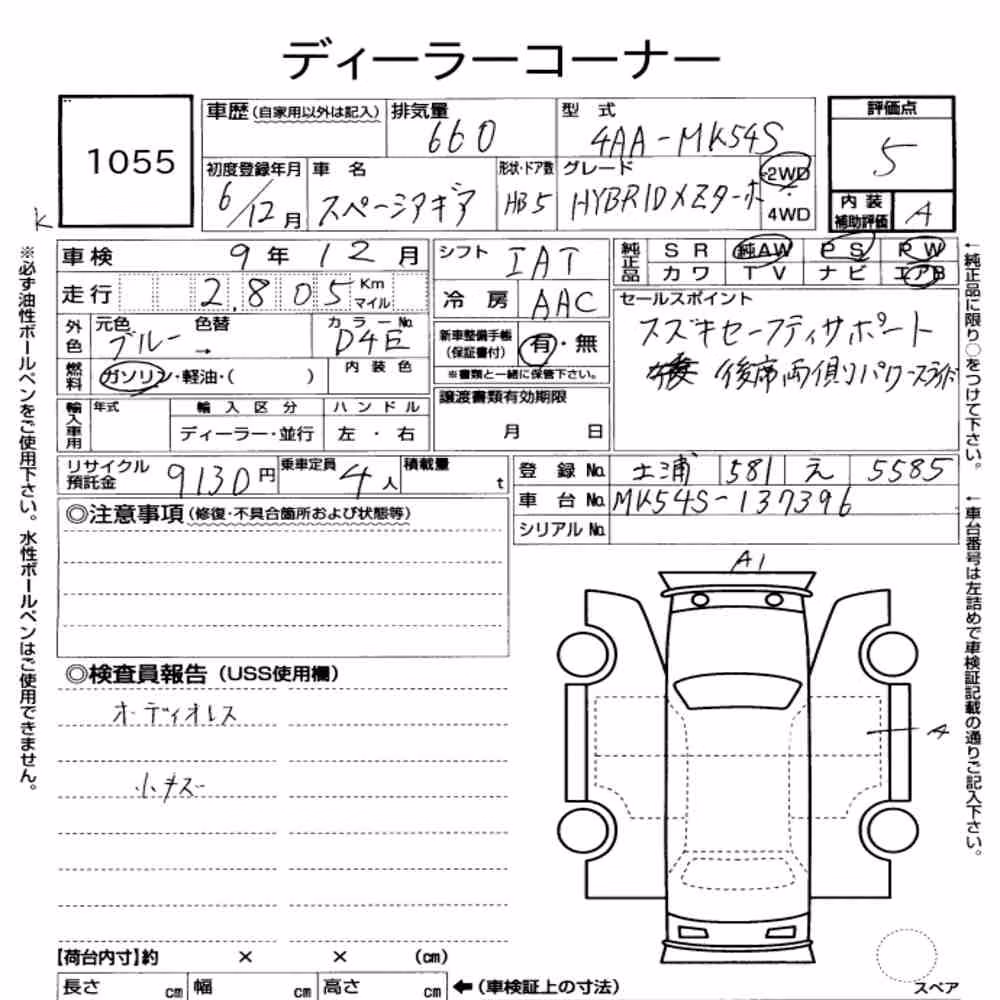 ディーラーコーナー
1055
K
車歴(自家用以外は記入)
排気量 660
型式 4AA-MK54S
評価点 5
初度登録年月 6/12月
車名 スペーシアギア
形状・ドア数 HB5
グレード HYBRID XZターボ
2WD
4WD
内装補助評価 A
車検 9年12月
シフト IAT
純正品 SR 純AW PS PW
カワ TV ナビ エアB
走行 2,805 Km マイル
冷房 AAC
セールスポイント
スズキセーフティサポート
後席両側パワースライド
外色 元色 ブルー 色替 → カラーNo. D4E
新車整備手帳(保証書付) 有・無
※書類と一緒に保管下さい。
燃料 ガソリン・軽油・( ) 内装色
輸入車用 年式 輸入区分 ハンドル
ディーラー・並行 左・右
譲渡書類有効期限
月 日
リサイクル預託金 9130円 乗車定員 4人 積載量 t
登録No. 土浦 581 え 5585
車台No. MK54S-137396
シリアルNo.
◎注意事項(修復・不具合箇所および状態等)
◎検査員報告(USS使用欄)
オーディオレス
小キズ
A1
A
【荷台内寸】約 × × (cm)
長さ cm 幅 cm 高さ cm ←(車検証上の寸法)
スペア
※必ず油性ボールペンをご使用下さい。水性ボールペンはご使用できません。
←純正品に限り○をつけて下さい。
←車台番号は左詰めで車検証記載の通りご記入下さい。